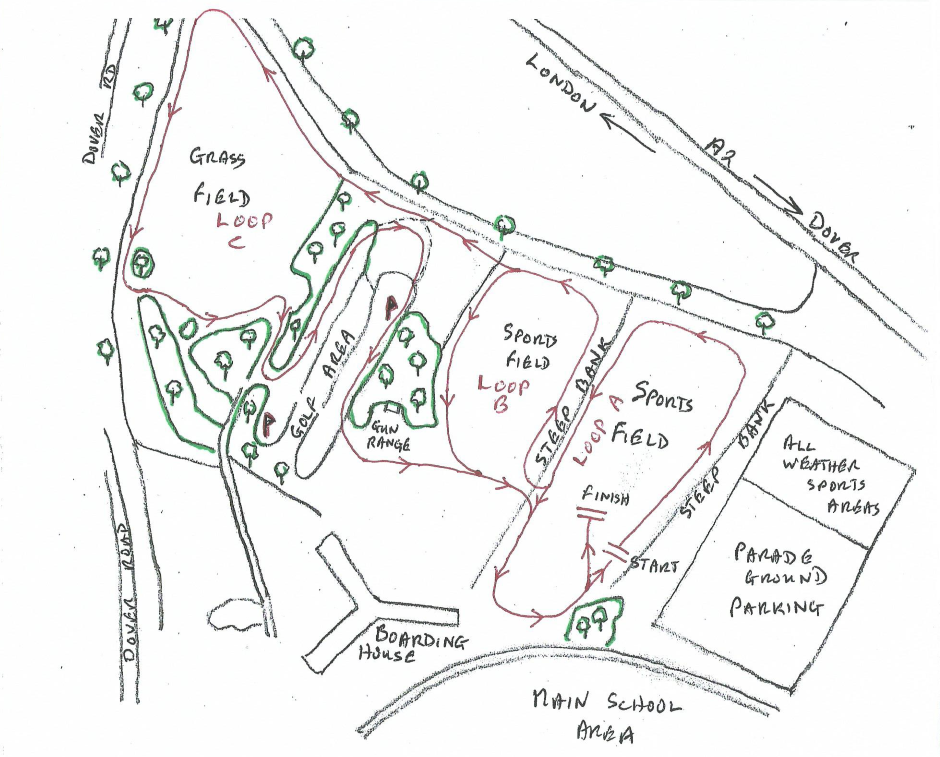 DOVER RD
LONDON
A2
DOVER
GRASS
FIELD
LOOP
C
SPORTS
FIELD
LOOP
B
STEEP BANK
LOOP A
SPORTS
FIELD
STEEP BANK
ALL
WEATHER
SPORTS
AREAS
GOLF AREA
GUN
RANGE
FINISH
START
PARADE
GROUND
PARKING
DOVER ROAD
BOARDING
HOUSE
MAIN SCHOOL
AREA